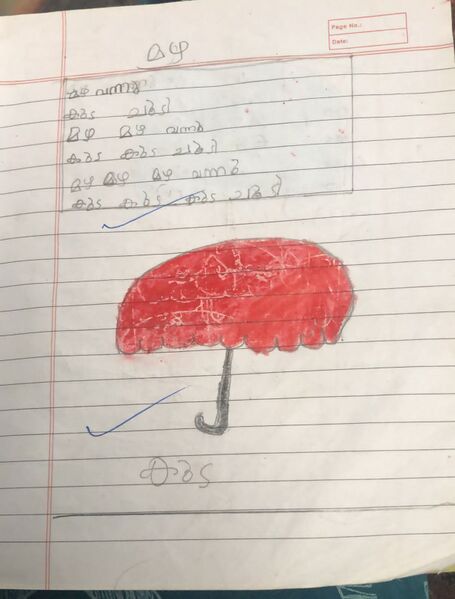 Page No.:
Date:
മഴ
മഴ വന്നു
കുട ചൂടി
മഴ മഴ വന്നു
കുട കുട ചൂടി
മഴ മഴ മഴ വന്നു
കുട കുട കുട ചൂടി
കുട